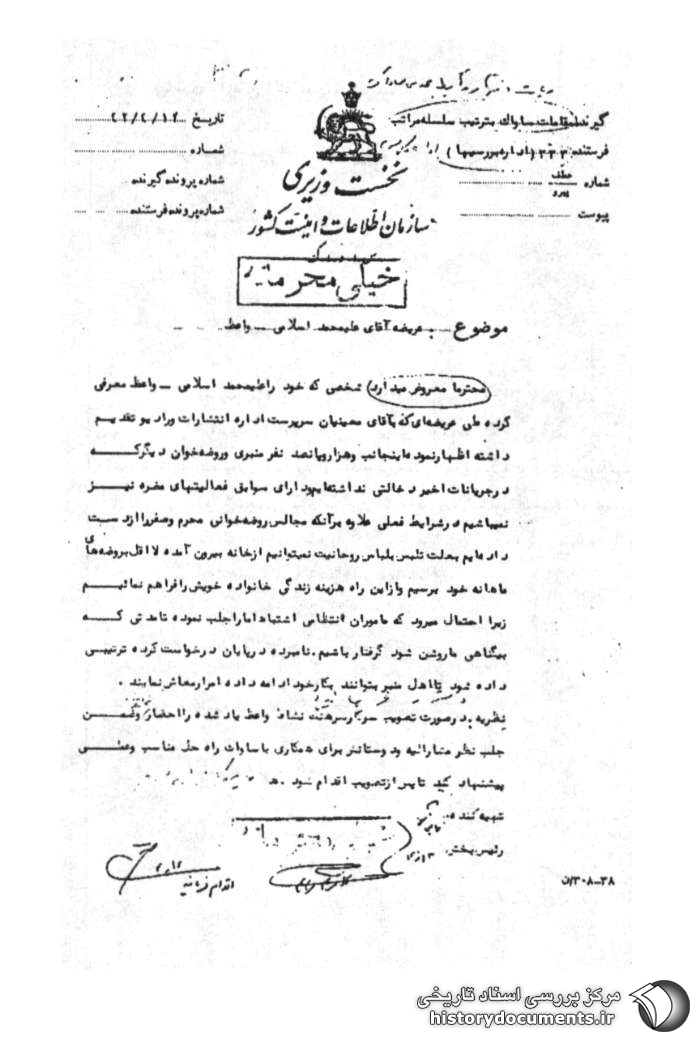 گیرنده مقامات ساواک بترتیب سلسله مراتب
فرستنده ۳۳۳ (اداره بررسیها)
شماره عطف پیرو
پیوست
تاریخ ۴۲/۴/۱۲
شماره
شماره پرونده گیرنده
شماره پرونده فرستنده
نخست وزیری
سازمان اطلاعات و امنیت کشور
خیلی محرمانه
موضوع عریضه آقای علیمحمد اسلامی – واعظ
محترما معروض میدارد، شخصی که خود را علیمحمد اسلامی – واعظ معرفی
کرده طی عریضه‌ای که بآقای معینیان سرپرست اداره انتشارات ورادیو تقدیم
داشته اظهارنموده اینجانب وهزاروپانصد نفر منبری وروضه‌خوان دیگرکه
درجریانات اخیر دخالتی نداشته‌ایم ودارای سوابق فعالیتهای مضره نیز
نمیباشیم درشرایط فعلی علاوه برآنکه مجالس روضه‌خوانی محرم وصفررا ازدست
داده‌ایم بعلت تلبس بلباس روحانیت نمیتوانیم ازخانه بیرون آمده لااقل بروضه‌های
ماهانه خود برسیم وازاین راه هزینه زندگی خانواده خویش رافراهم نمائیم
زیرا احتمال میرود که ماموران انتظامی اشتباها ماراجلب نموده تامدتی که
بیگناهی ماروشن شود گرفتار باشیم. نامبرده درپایان درخواست کرده ترتیبی
داده شود تااهل منبر بتوانند بکارخود ادامه داده امرارمعاش نمایند.
نظریه: درصورت تصویب سرکارسرهنگ نشاط واعظ یادشده رااحضار وضمن
جلب نظر مشارالیه ودوستانش برای همکاری باساواک راه حل مناسب وعملی
پیشنهاد کنند تاپس ازتصویب اقدام شود. ه
تهیه کننده
رئیس بخش
اقدام فرمائید
۳۰۸-۳۸/ن
مرکز بررسی اسناد تاریخی
historydocuments.ir